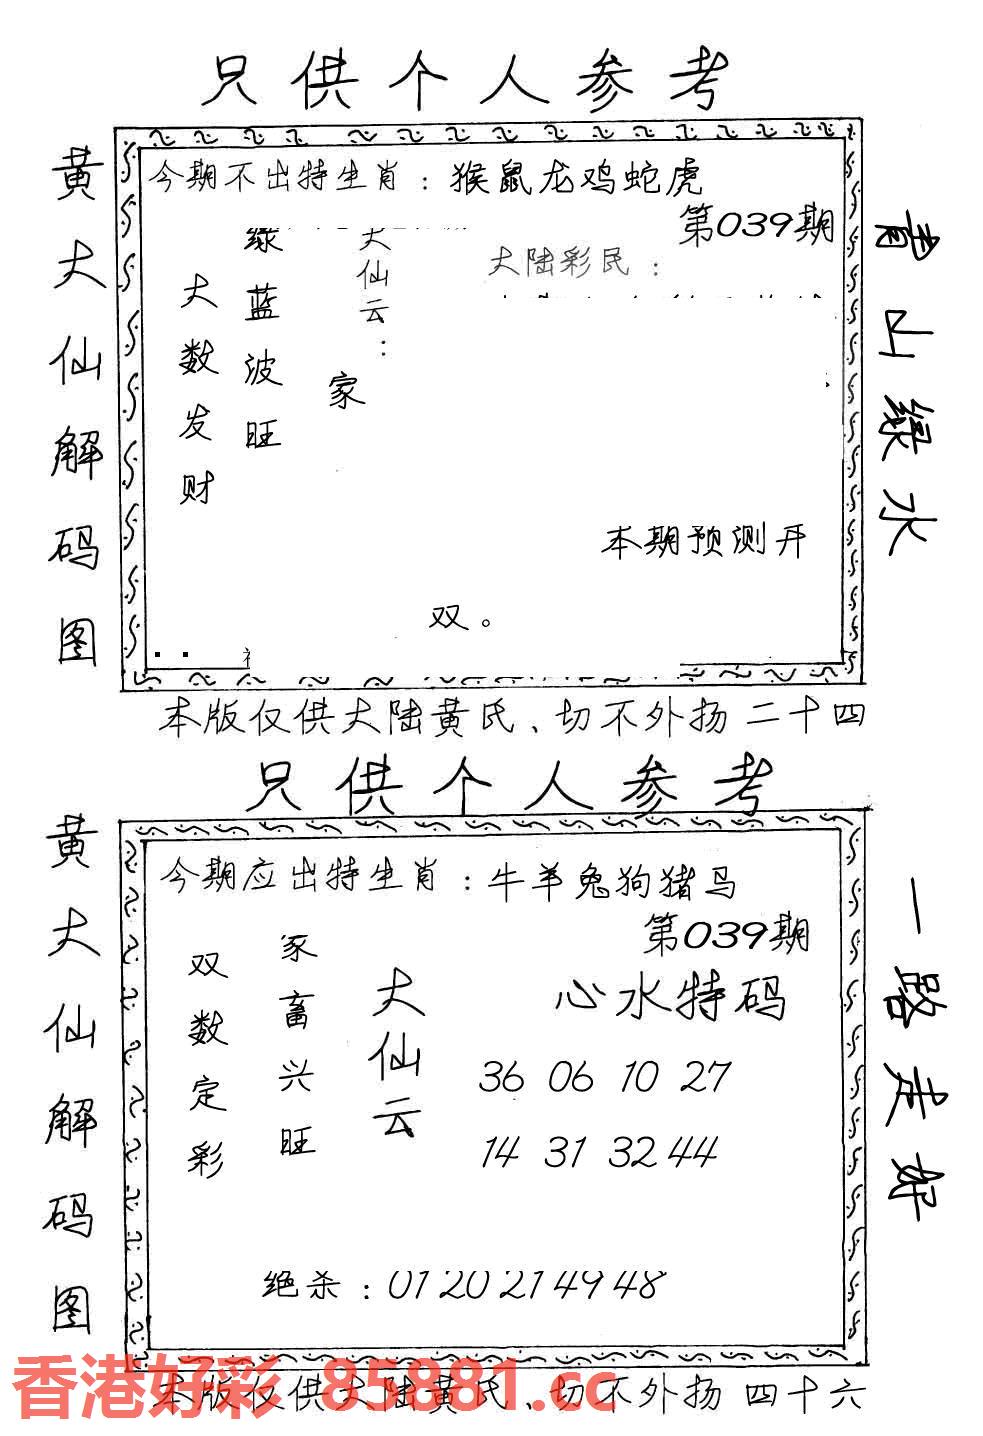 只供个人参考
黄大仙解码图
今期不出特生肖：猴鼠龙鸡蛇虎
第039期
大陆彩民：
大仙云：
家
绿蓝波旺
大数发财
本期预测开
双。
青山绿水
本版仅供大陆黄氏、切不外扬 二十四
只供个人参考
黄大仙解码图
今期应出特生肖：牛羊兔狗猪马
第039期
心水特码
36 06 10 27
14 31 32 44
大仙云
家畜兴旺
双数定彩
绝杀：01 20 21 49 48
一路走好
香港好彩 85881.cc
本版仅供大陆黄氏、切不外扬 四十六